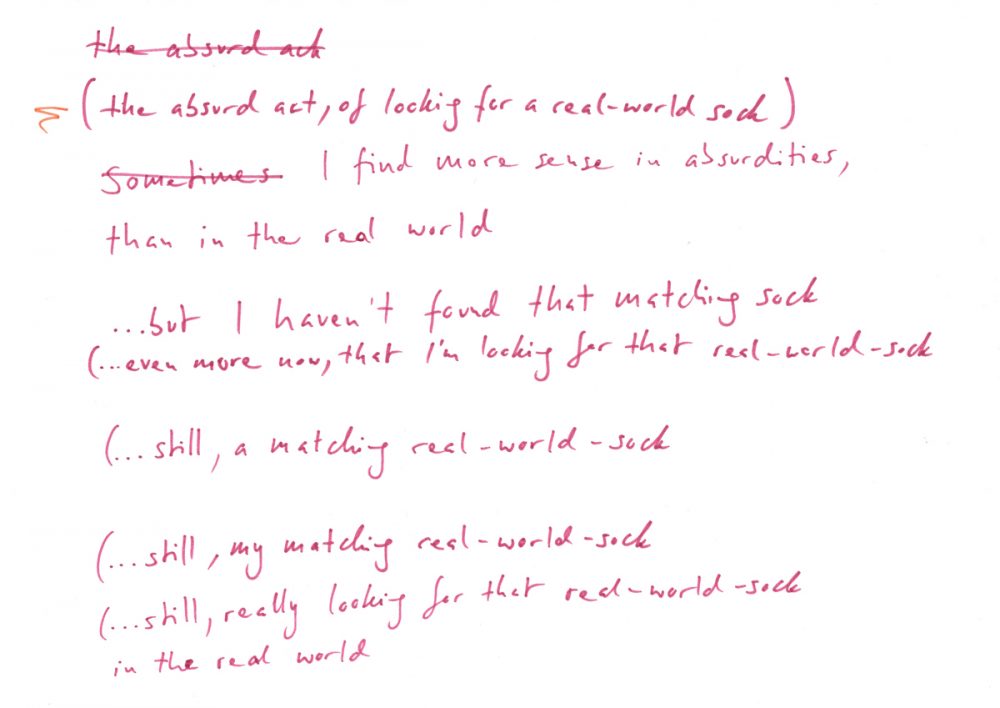 the absurd ack
(the absurd act, of looking for a real-world sock)
Sometimes I find more sense in absurdities,
than in the real world
...but I haven't found that matching sock
(...even more now, that I'm looking for that real-world-sock
(...still, a matching real-world-sock
(...still, my matching real-world-sock
(...still, really looking for that real-world-sock
in the real world